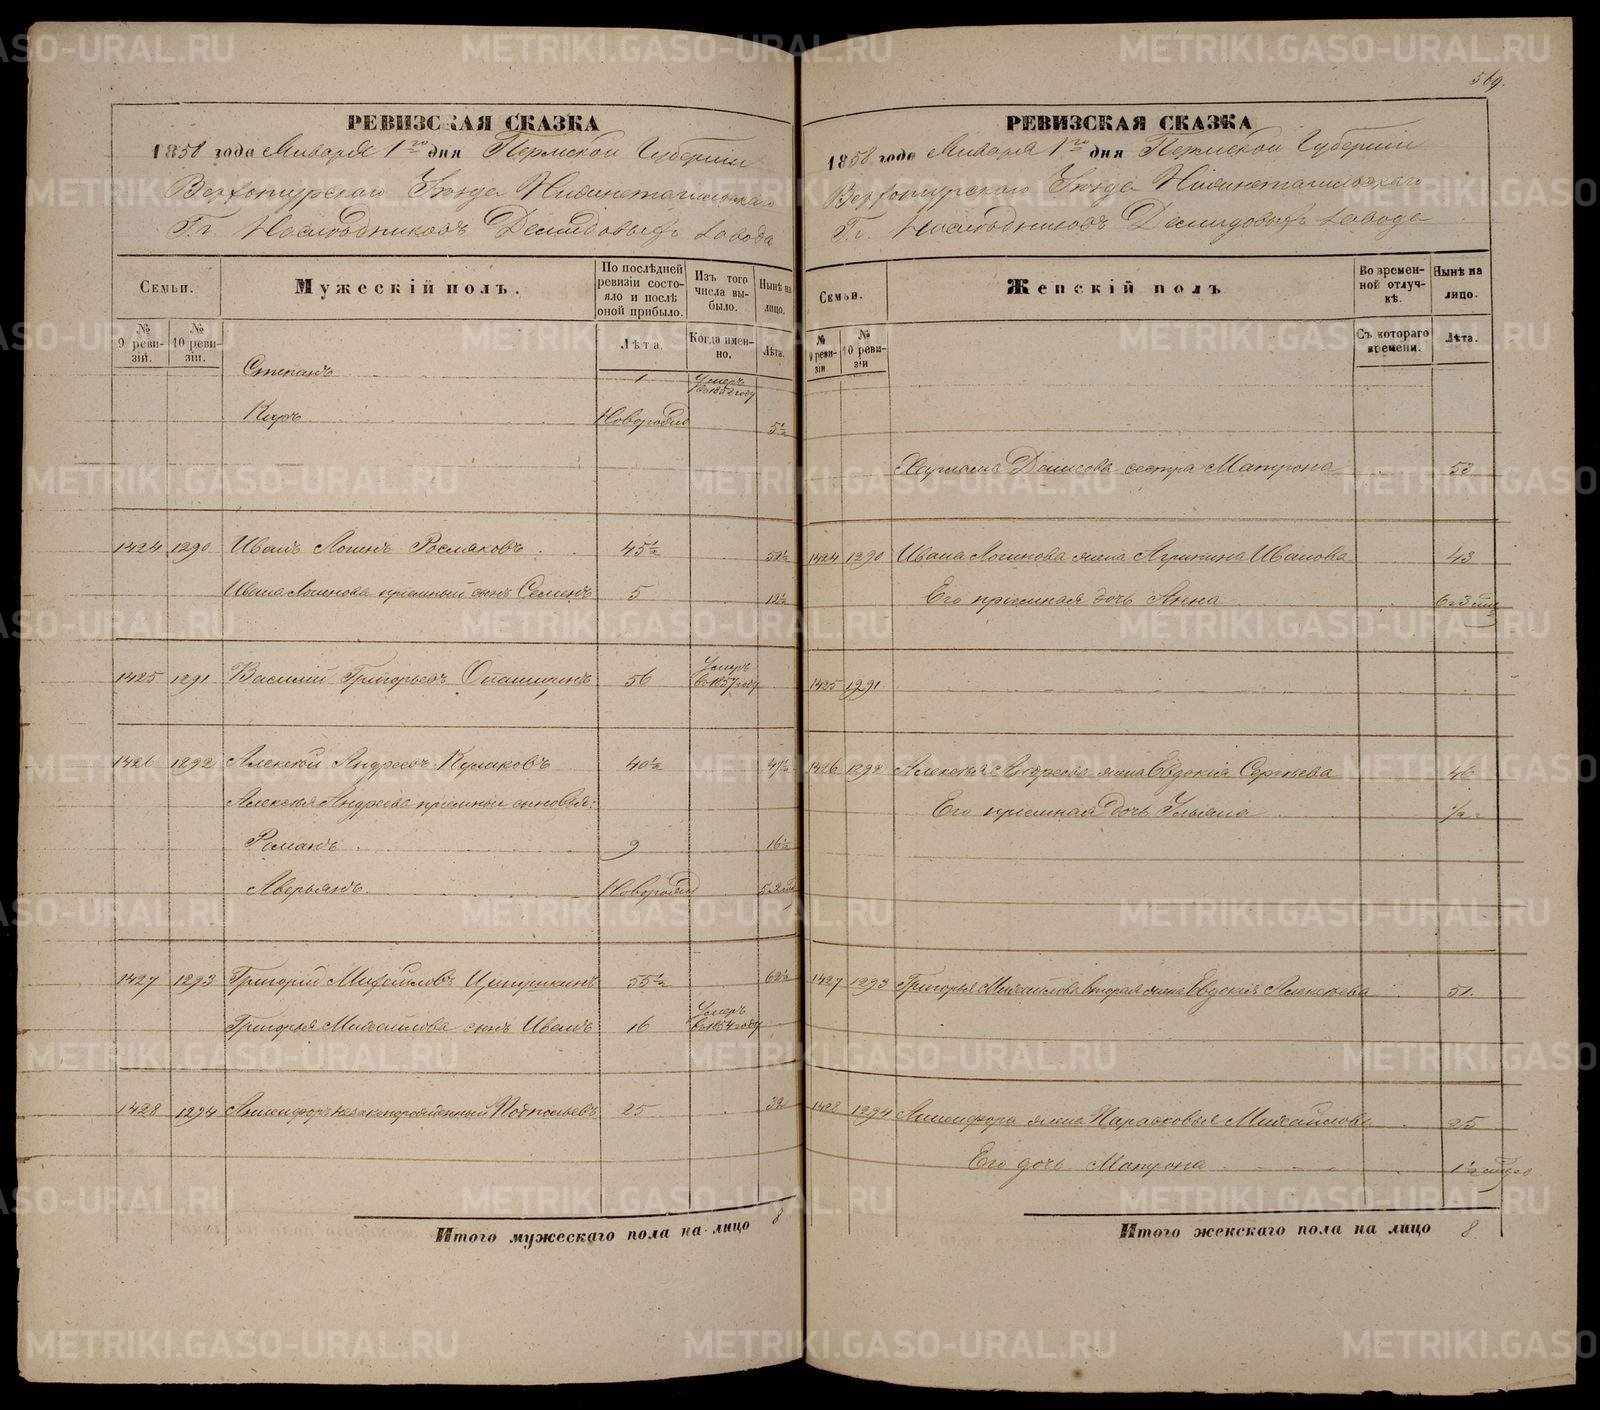 569.
РЕВИЗСКАЯ СКАЗКА
1858 года Января 1го дня Пермской Губернии
Верхотурского Уѣзда Нижнетагильскаго
Г.г. Наслѣдниковъ Демидовыхъ завода
Семьи.
Мужескій полъ.
По послѣдней ревизіи состояло и послѣ оной прибыло.
Изъ того числа выбыло.
Нынѣ на лицо.
№ 9 ревизіи.
№ 10 ревизіи.
Лѣта.
Когда именно.
Лѣта.
Степанъ 1 Умеръ въ 1852 году
Киръ Новорожд 5½
1424 1290 Иванъ Логинъ 45½ 52½
Ивана Логинова приемный сынъ Семенъ 5 12½
1425 1291 Василий Григорьевъ 56 Умеръ въ 1857 году
1426 1292 Алексѣй Андреевъ Кулаковъ 40½ 47½
Алексѣя Андреева приемные сыновья:
Романъ 9 16½
Аверьянъ Новорожд
1427 1293 Григорій Михайловъ 55½ 62½
Григорья Михайлова сынъ Иванъ 16 Умеръ въ 1854 году
1428 1294 незаконорожденный 25 32
Итого мужескаго пола на лицо 8
РЕВИЗСКАЯ СКАЗКА
1858 года Января 1го дня Пермской Губернии
Верхотурского Уѣзда Нижнетагильскаго
Г.г. Наслѣдниковъ Демидовыхъ завода
Семьи.
Женскій полъ
Во временной отлучкѣ.
Нынѣ на лицо.
№ 9 ревизіи
№ 10 ревизіи
Съ котораго времени.
Лѣта.
Денисова сестра Матрона 53
1424 1290 Ивана Логинова жена Агрипина Иванова 43
Его приемная дочь Анна
1425 1291
1426 1292 Алексѣя Андреева жена Евдокия Сергѣева 46
Его приемная дочь Ульяна ½
1427 1293 Григорья Михайлова вторая жена Евдокия Алексѣева 51.
1428 1294 жена Парасковья Михайлова 25
Его дочь Матрона
Итого женскаго пола на лицо 8
METRIKI.GASO-URAL.RU